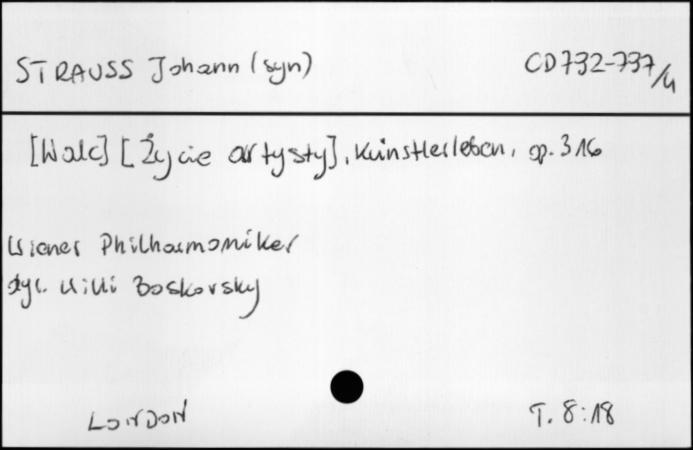 STRAUSS Johann (syn)
CD732-737/4
[Walc] [Życie artysty], Künstlerleben, op. 316
Wiener Philharmoniker
dyr. Willi Boskovsky
LONDON
T. 8:18